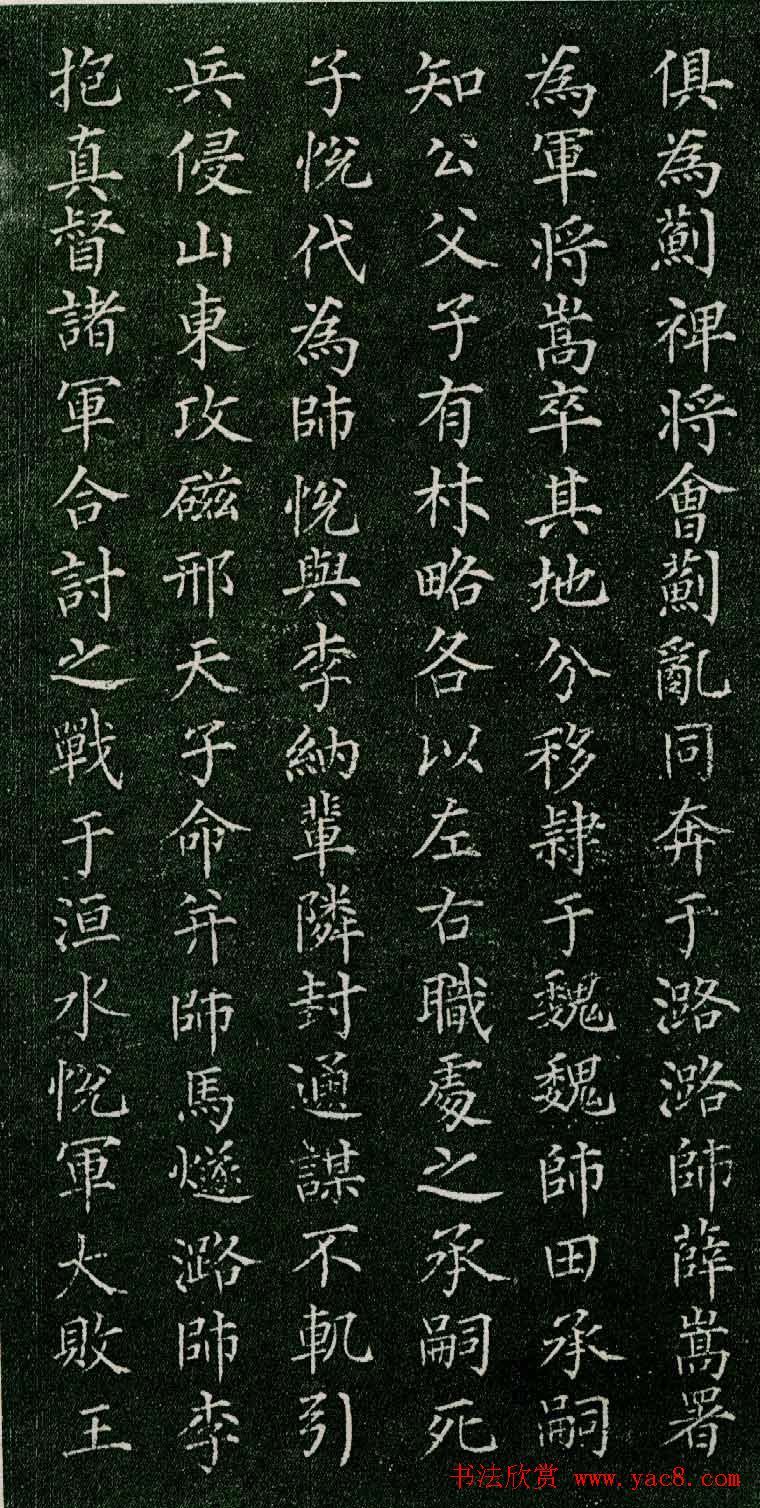 俱為薊裨将會薊亂同奔于潞潞帥薛嵩署
為軍将嵩卒其地分移隸于魏魏帥田承嗣
知公父子有材略各以左右職處之承嗣死
子悅代為帥悅與李納輩隣封通謀不軌引
兵侵山東攻磁邢天子命并帥馬燧潞帥李
抱真督諸軍合討之戰于洹水悅軍大敗王
书法欣赏 www.yac8.com